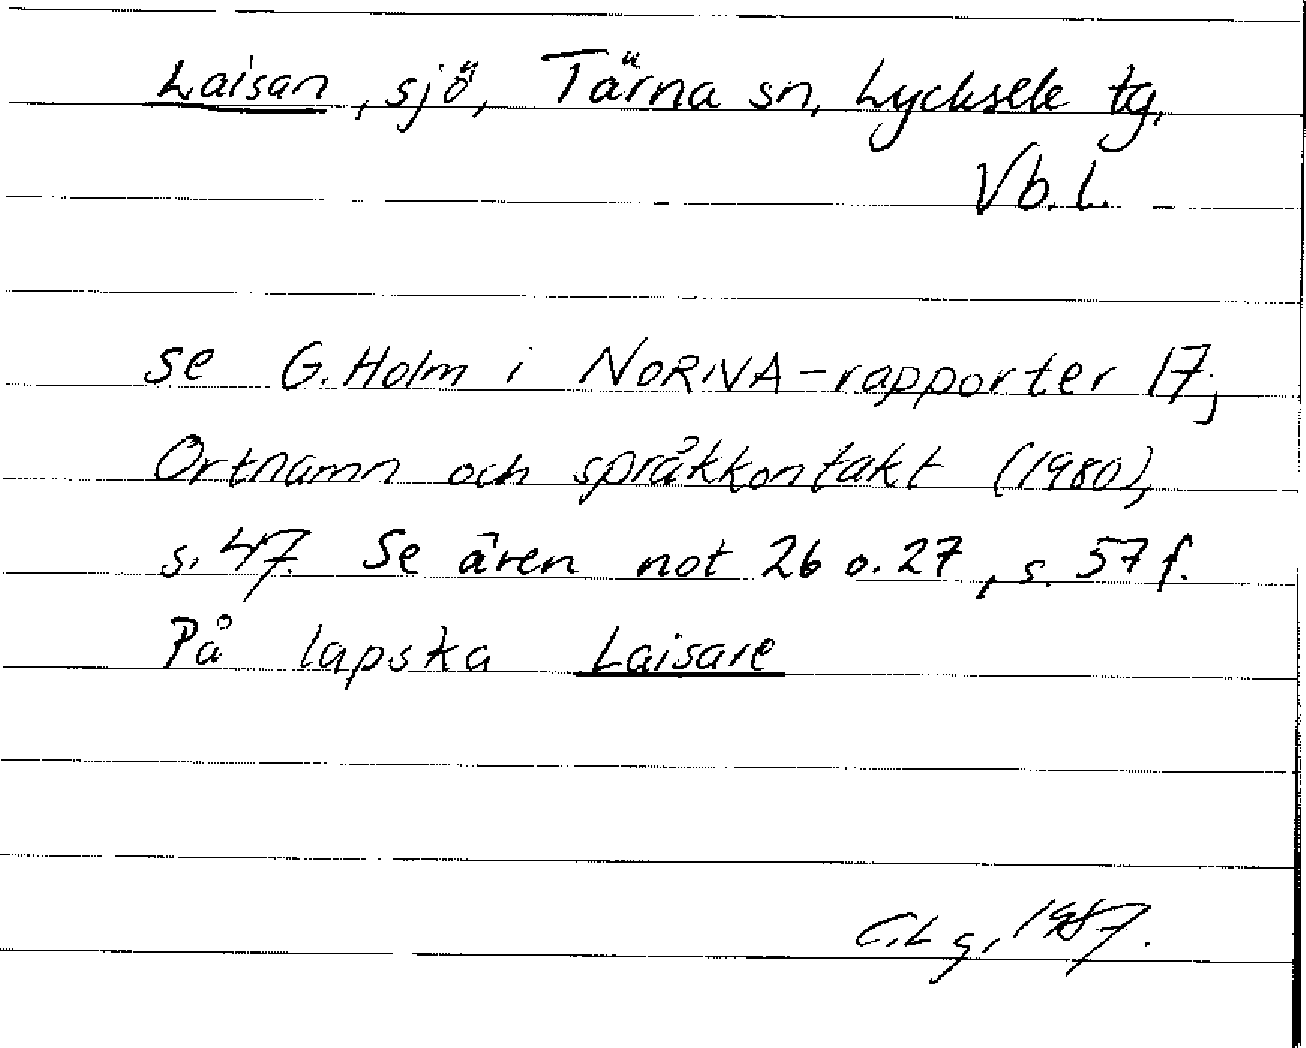 Laisan, sjö, Tärna sn, Lycksele tg,
Vb.l.
se G. Holm i NORNA-rapporter 17;
Ortnamn och språkkontakt (1980),
s. 47. Se även not 26 o. 27, s. 57 f.
På lapska Laisare
C.Lg, 1987.